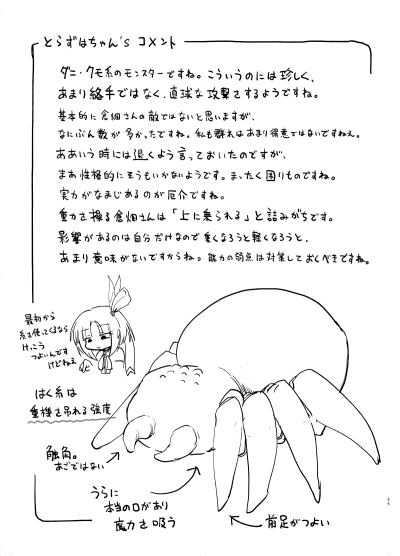 とらずはちゃん's コメント
ダニ・クモ系のモンスターですね。こういうのには珍しく、
あまり絡手ではなく、直球な攻撃をするようですね。
基本的に倉畑さんの敵ではないと思いますが、
なにぶん数が多かったですね。私も群れはあまり得意ではないですねえ。
ああいう時には退くよう言っておいたのですが、
まあ性格的にそうもいかないようです。まったく困りものですね。
実力がなまじあるのが厄介ですね。
重力を操る倉畑さんは「上に乗られる」と詰みがちです。
影響があるのは自分だけなので重くなろうと軽くなろうと、
あまり意味がないですからね。能力の弱点は対策しておくべきですね。
最初から
糸を使ってくるなら
けっこう
つよいんです
けどねえ
はく糸は
重機を吊れる強度
触角。
あごではない
うらに
本当の口があり
魔力を吸う
前足がつよい